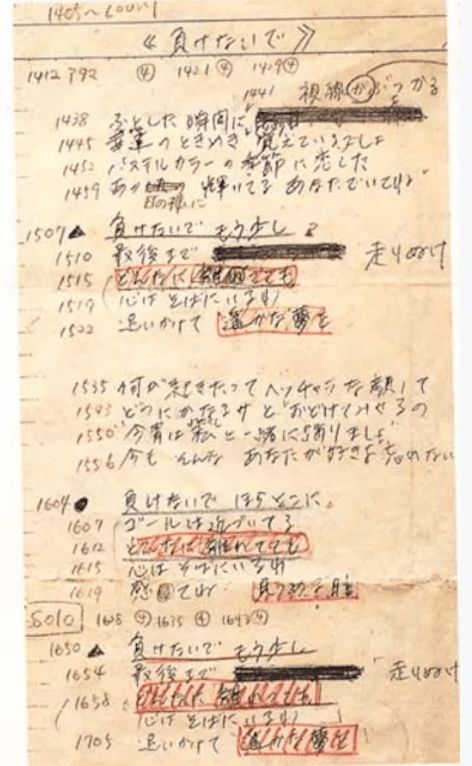 1405~COUNT
《負けないで》
1412 1392 ④ 1421 ④ 1429 ④
1441 視線がぶつかる
1438 ふとした瞬間に
1445 幸運のときめき 覚えているでしょ
1452 パステルカラーの季節に恋した
1459 あの 輝いてる あなたでいてね
日の様に
1507 ▲ 負けないで もう少し
1510 最後まで 走りぬけ
1515 どんなに 離れてても
1519 心は そばにいるわ
1522 追いかけて 遥かな夢を
1535 何が起きたって ヘッチャラな顔して
1543 どうにかなるサと おどけてみせるの
1550 "今宵は私と一緒に踊りましょ"
1556 今も そんな あなたが好きよ 忘れない
1604 ● 負けないで ほらそこに
1607 ゴールは近づいてる
1612 どんなに 離れてても
1615 心はそばにいるわ
1619 感じてね 見つめる瞳
SOLO ④ 1635 ④ 1642 ④
1650 ▲ 負けないで もう少し
1654 最後まで 走りぬけ
1658 どんなに 離れてても
心は そばにいるわ
1705 追いかけて 遥かな夢を